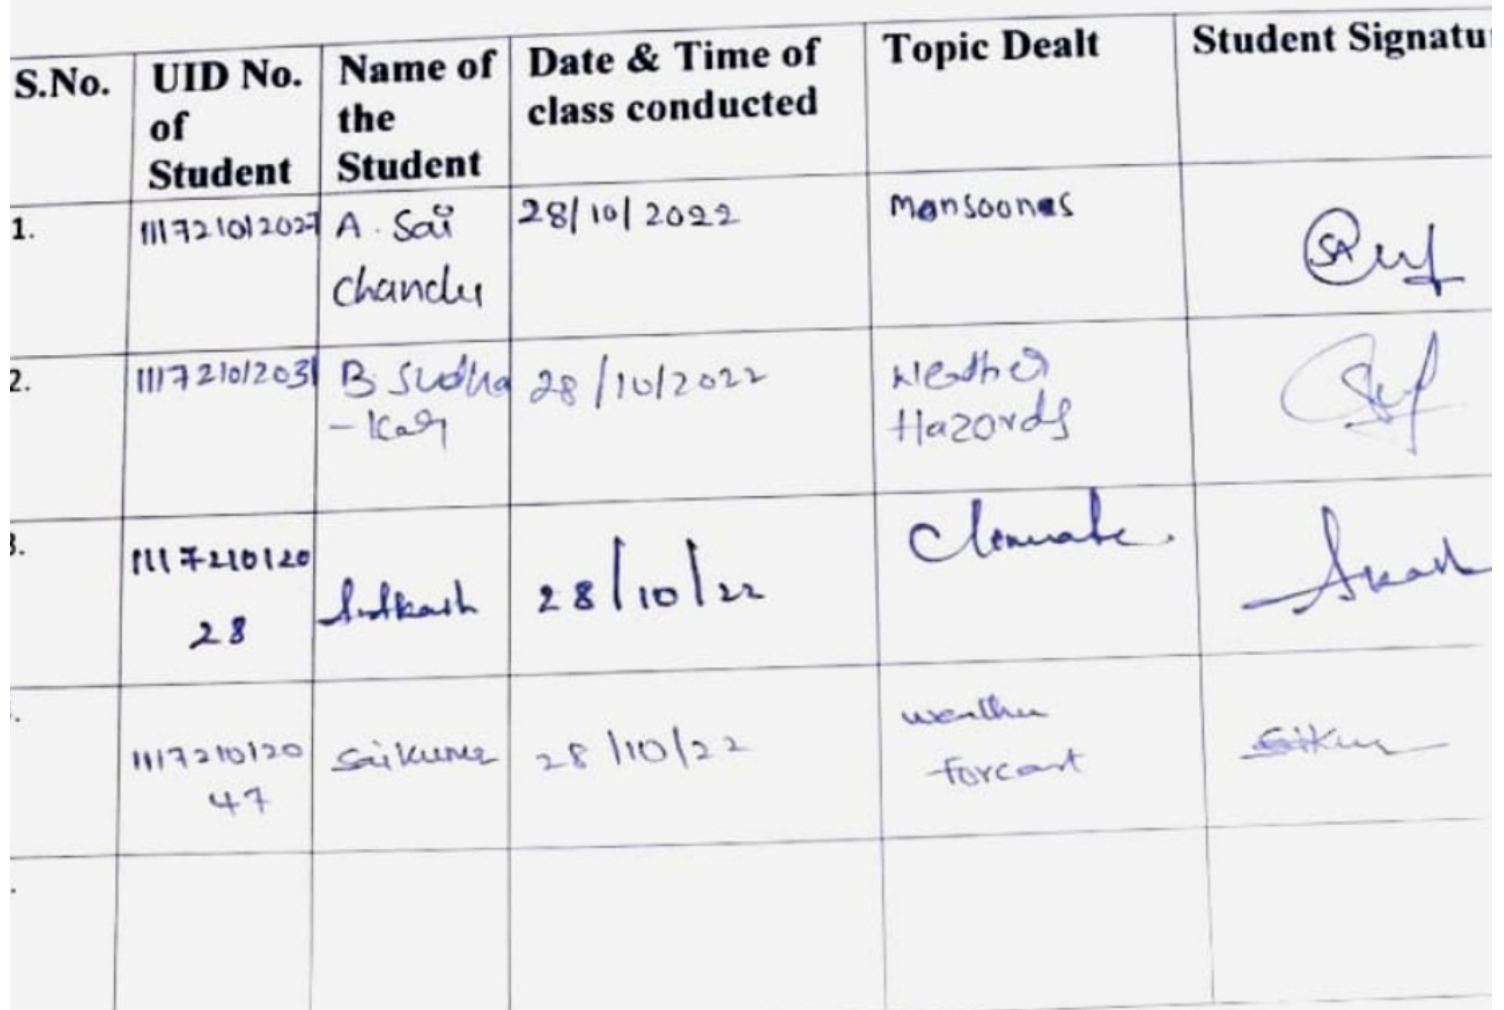 S.No. UID No. of Student Name of the Student Date & Time of class conducted Topic Dealt Student Signatu
1. 111721012027 A. Sai Chandu 28/10/2022 Mansoones
2. 111721012031 B Sudha-kar 28/10/2022 Weather Hazords
3. 111721012028 28/10/22 Climate.
111721012047 Saikumar 28/10/22 weather forcast